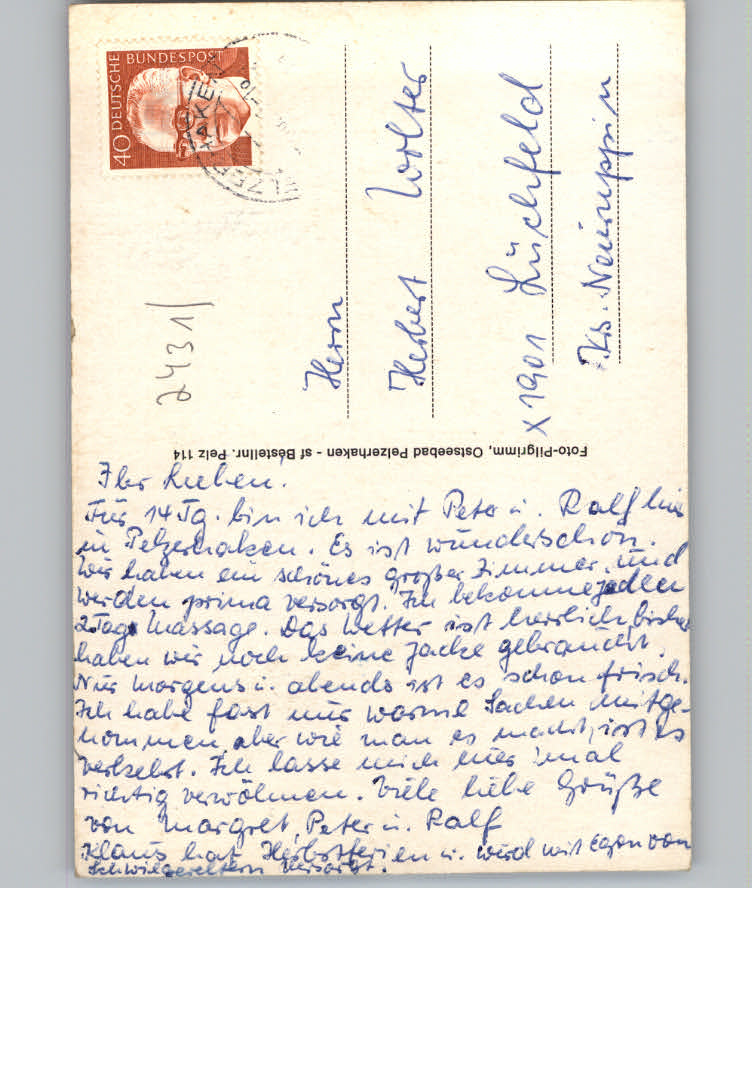 Ihr Lieben!
Für 14 Tg. bin ich mit Peter u. Ralf hier
in Pelzerhaken. Es ist wunderschön.
Wir haben ein schönes großes Zimmer und
werden prima versorgt. Ich bekomme jeden
2. Tag Massage. Das Wetter ist herrlich, bisher
haben wir noch keine Jacke gebraucht.
Nur morgens u. abends ist es schon frisch.
Ich habe fast nur warme Sachen mitge-
nommen, aber wie man es macht, ist es
verkehrt. Ich lasse mich hier 'mal
richtig verwöhnen. Viele liebe Grüße
von Margret, Peter u. Ralf
Klaus hat Herbstferien u. wird mit Egon von
Schwiegereltern versorgt.
Foto-Pilgrimm, Ostseebad Pelzerhaken - sf Bestellnr. Pelz 114
DEUTSCHE BUNDESPOST
40
2431/
Herrn
Herbert Wolter
X 1901 Lüchfeld
Kr. Neuruppin